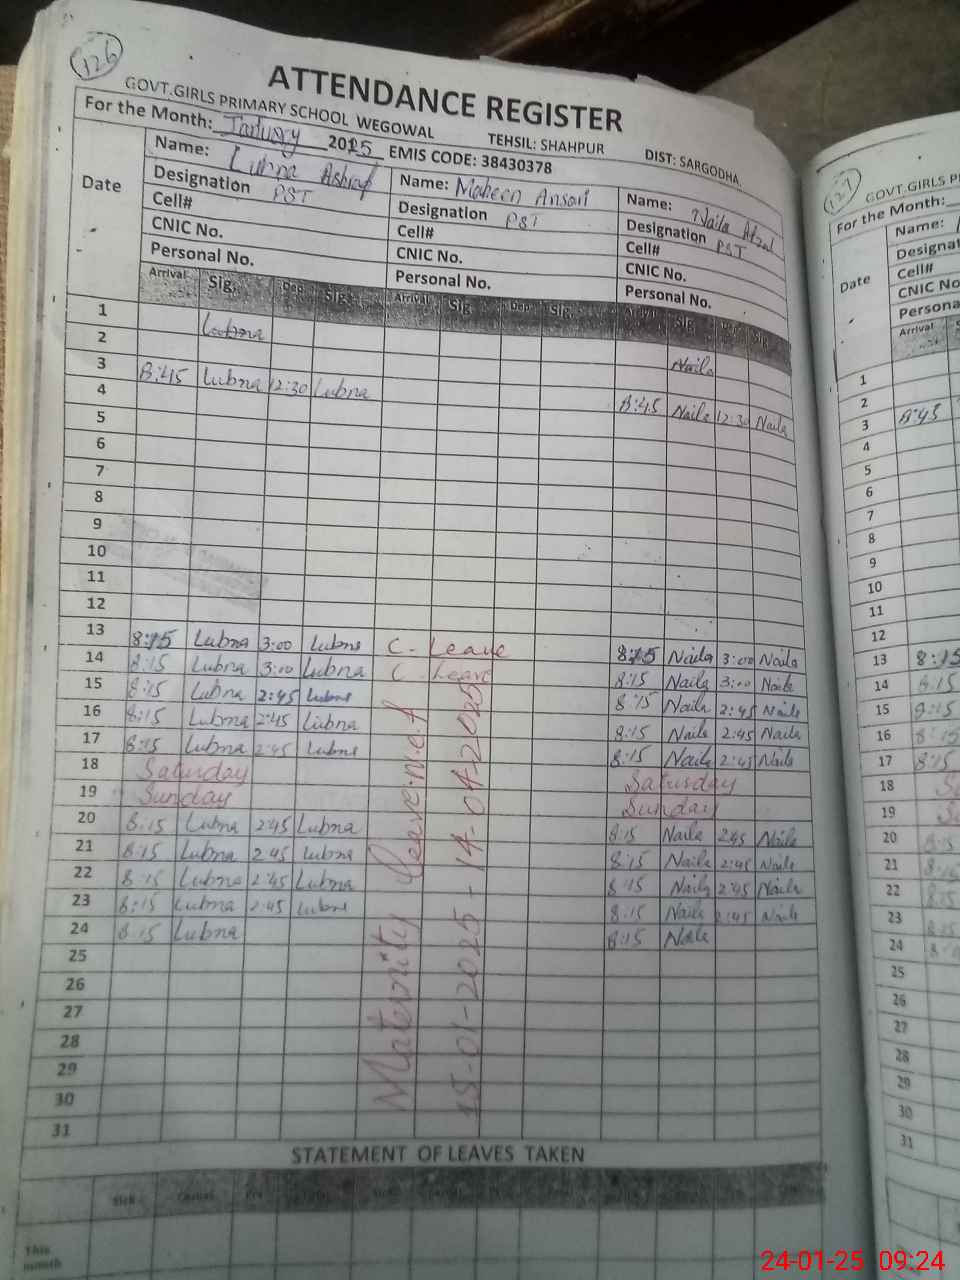 126
ATTENDANCE REGISTER
GOVT.GIRLS PRIMARY SCHOOL WEGOWAL TEHSIL: SHAHPUR DIST: SARGODHA.
For the Month: January 2025 EMIS CODE: 38430378
Date
Name: Lubna Ashraf Name: Maheen Ansari Name: Naila Afzal
Designation PST Designation PST Designation PST
Cell# Cell# Cell#
CNIC No. CNIC No. CNIC No.
Personal No. Personal No. Personal No.
Arrival Sig. Dep. Sig. Arrival Sig. Dep. Sig. Sig. Sig.
1 Lubna
2 Naila
3 8:45 Lubna 12:30 Lubna 8:45 Naila 12:30 Naila
4
5
6
7
8
9
10
11
12
13 8:15 Lubna 3:00 Lubna C. Leave 8:15 Naila 3:00 Naila
14 8:15 Lubna 3:00 Lubna C. Leave 8:15 Naila 3:00 Naila
15 8:15 Lubna 2:45 Lubna 8:15 Naila 2:45 Naila
16 8:15 Lubna 2:45 Lubna 8:15 Naila 2:45 Naila
17 8:15 Lubna 2:45 Lubna 8:15 Naila 2:45 Naila
18 Saturday Saturday
19 Sunday Sunday
20 8:15 Lubna 2:45 Lubna 8:15 Naila 2:45 Naila
21 8:15 Lubna 2:45 Lubna 8:15 Naila 2:45 Naila
22 8:15 Lubna 2:45 Lubna 8:15 Naila 2:45 Naila
23 8:15 Lubna 2:45 Lubna 8:15 Naila 2:45 Naila
24 8:15 Lubna 8:15 Naila
25
26
27
28
29
30
31
Maternity Leave
15-01-2025 - 14-04-2025
STATEMENT OF LEAVES TAKEN
Sick Casual
This
month
127
GOVT.GIRLS
For the Month:
Name:
Date
Designat
Cell#
CNIC No
Persona
Arrival
1
2
3 8:45
4
5
6
7
8
9
10
11
12
13 8:15
14 8:15
15 8:15
16 8:15
17 8:15
18
19
20 8:15
21 8:15
22 8:15
23 8:15
24
25
26
27
28
29
30
31
24-01-25 09:24